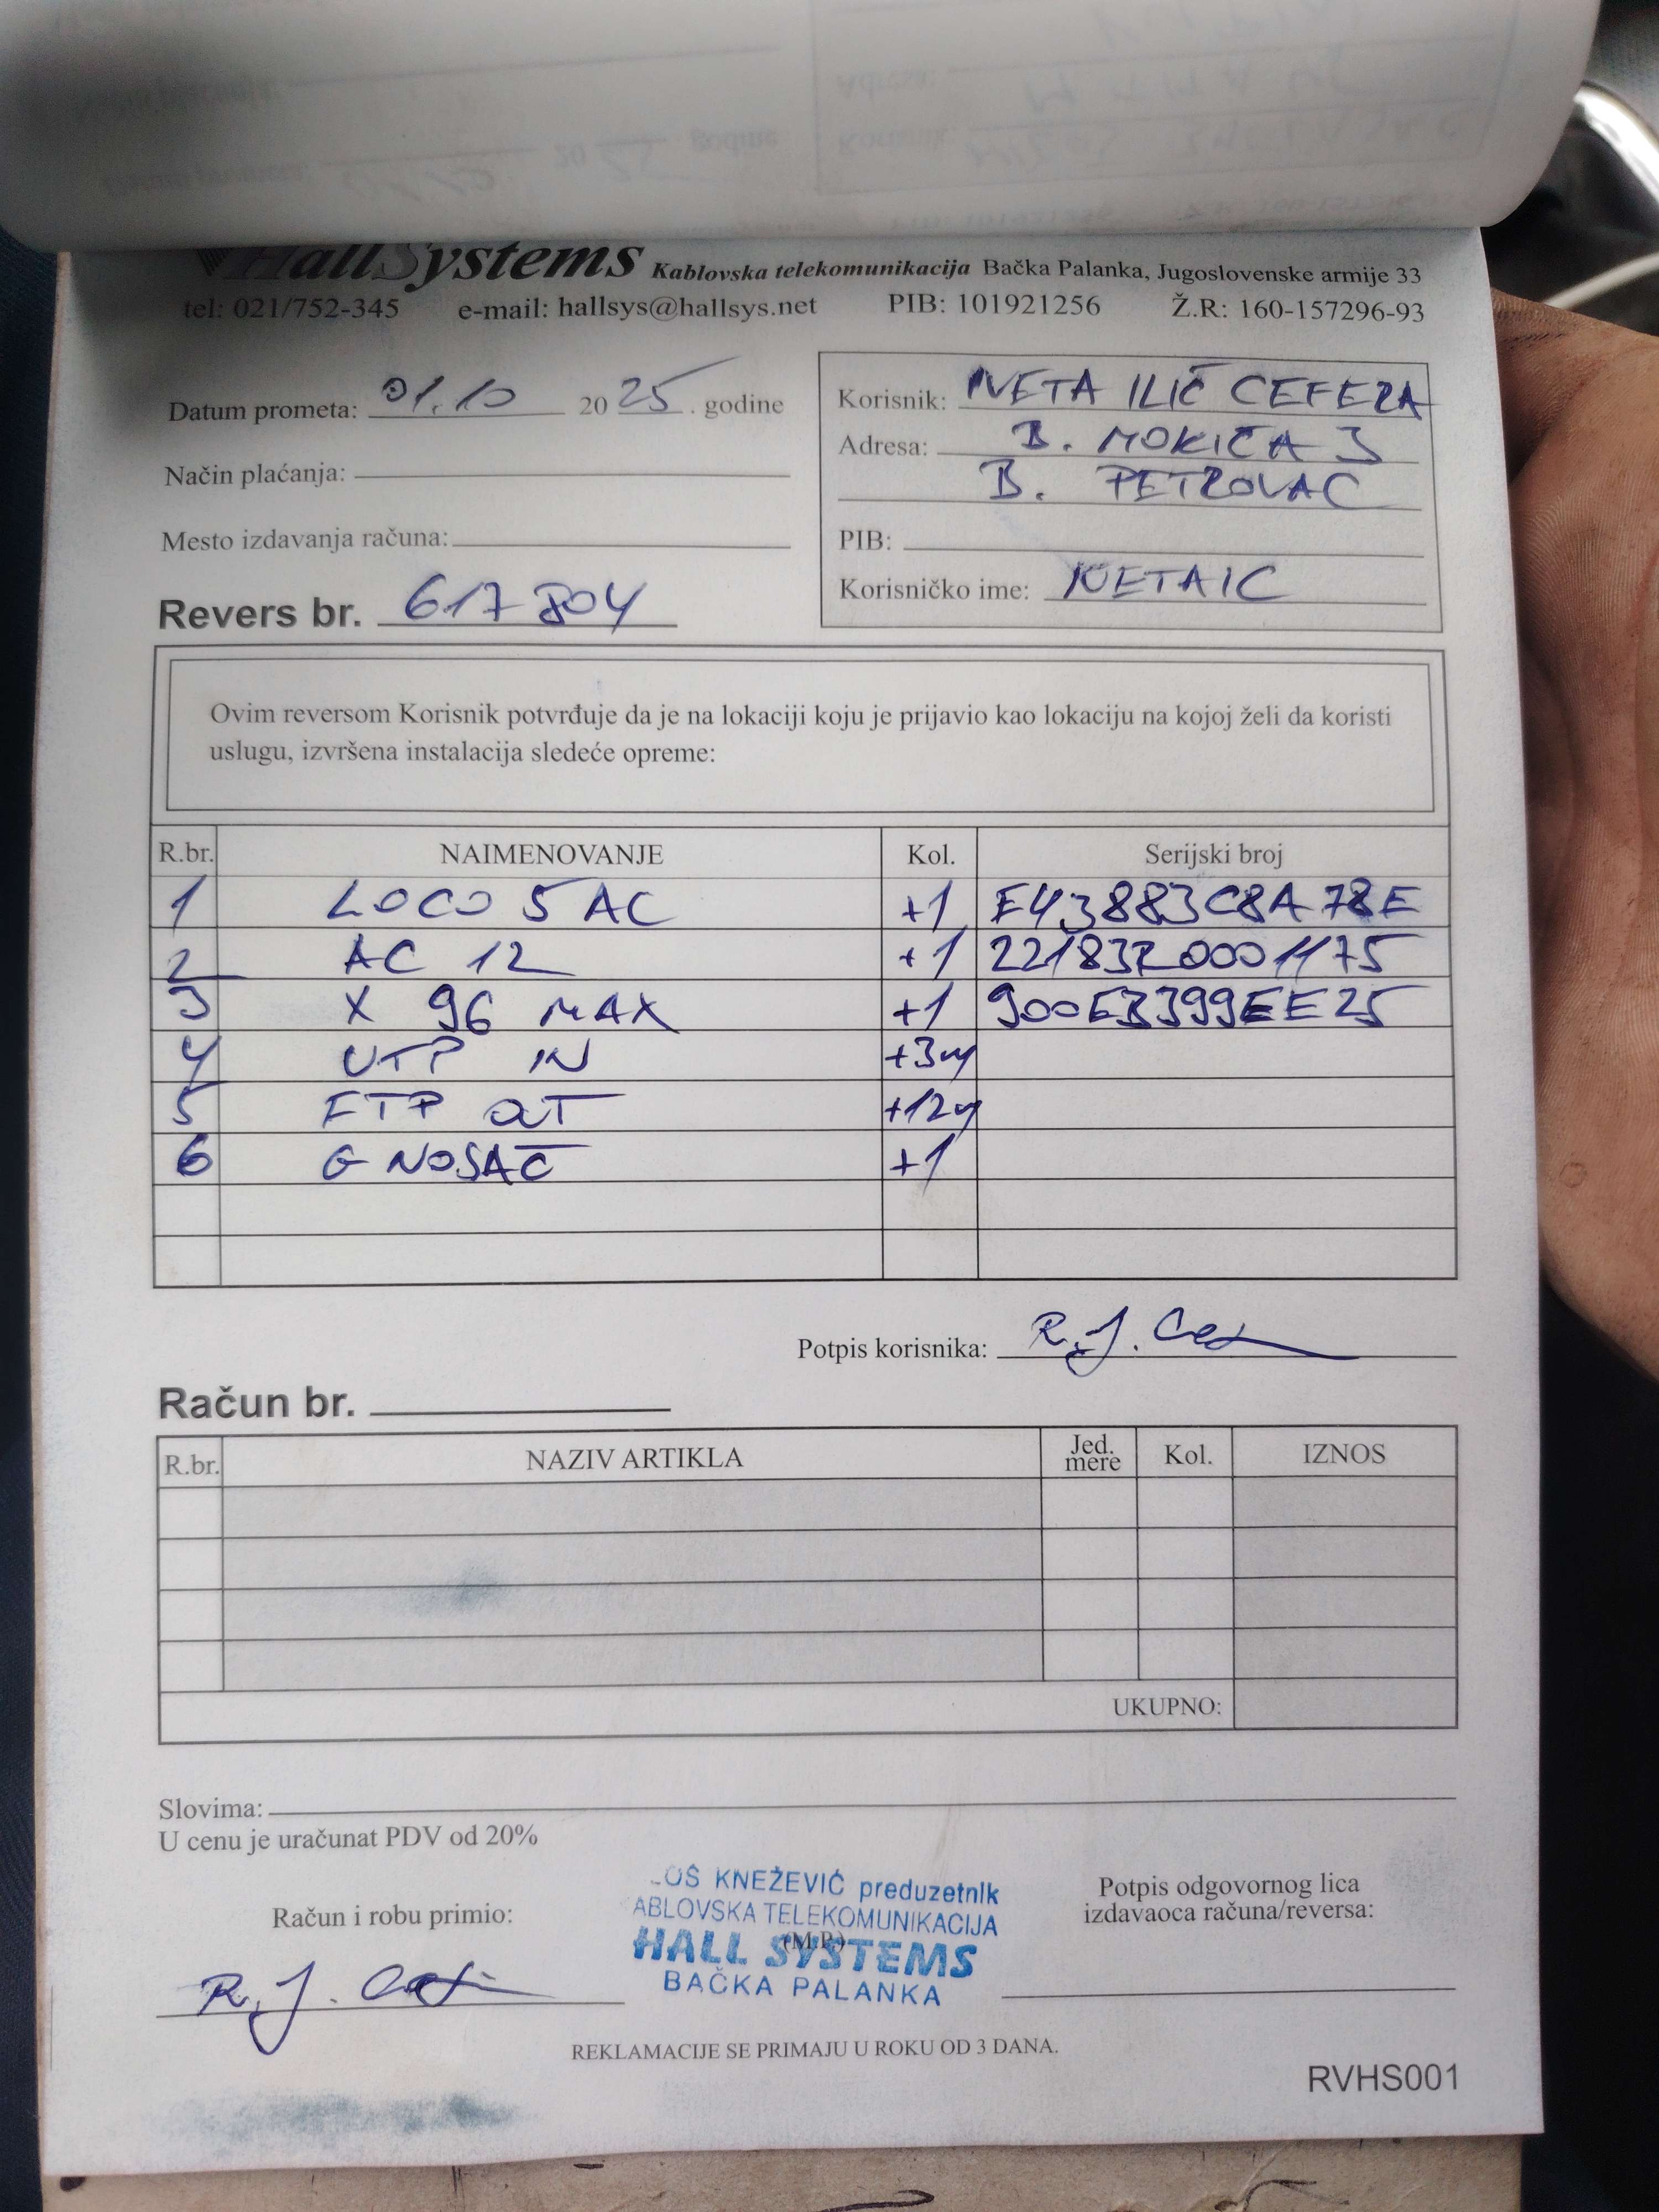 HallSystems Kablovska telekomunikacija Bačka Palanka, Jugoslovenske armije 33
tel: 021/752-345 e-mail: hallsys@hallsys.net PIB: 101921256 Ž.R: 160-157296-93
Datum prometa: 01.10 2025. godine
Način plaćanja:
Mesto izdavanja računa:
Revers br. 617804
Korisnik: IVETA ILIČ CEFERA
Adresa: B. MOKIČA 3
B. PETROVAC
PIB:
Korisničko ime: IVETAIC
Ovim reversom Korisnik potvrđuje da je na lokaciji koju je prijavio kao lokaciju na kojoj želi da koristi
uslugu, izvršena instalacija sledeće opreme:
R.br. NAIMENOVANJE Kol. Serijski broj
1 LOCO 5 AC +1 E43883C8A78E
2 AC 12 +1 221832000 1175
3 X 96 MAX +1 900E3399EE25
4 UTP IN +3m
5 FTP OUT +12m
6 G NOSAČ +1
Potpis korisnika:
Račun br.
R.br. NAZIV ARTIKLA Jed. mere Kol. IZNOS
UKUPNO:
Slovima:
U cenu je uračunat PDV od 20%
Račun i robu primio:
OŠ KNEŽEVIĆ preduzetnik
ABLOVSKA TELEKOMUNIKACIJA
(M.P.)
HALL SYSTEMS
BAČKA PALANKA
Potpis odgovornog lica
izdavaoca računa/reversa:
REKLAMACIJE SE PRIMAJU U ROKU OD 3 DANA.
RVHS001